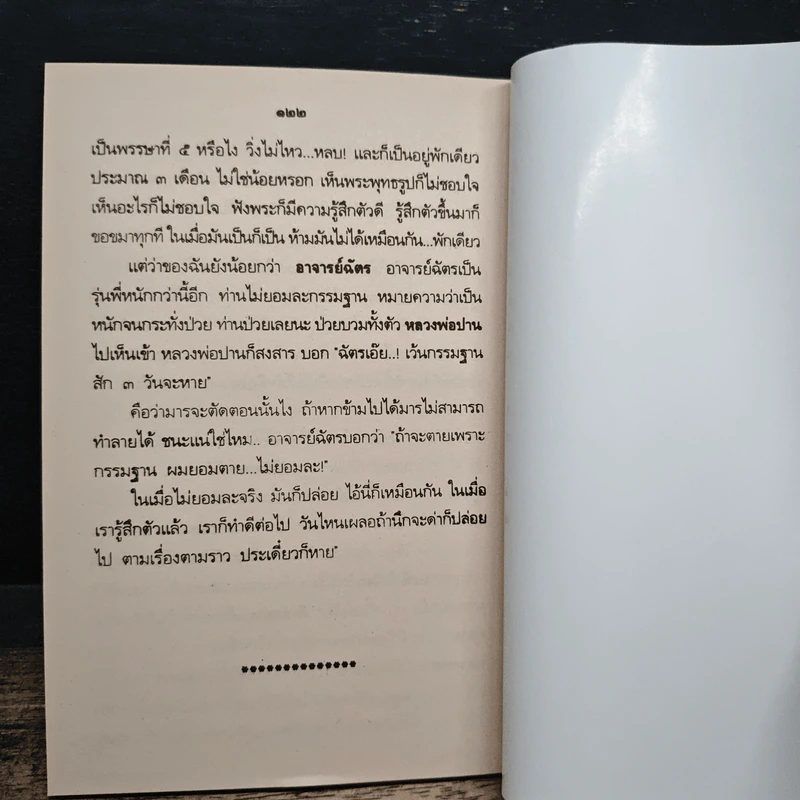 ๑๒๒
เป็นพรรษาที่ ๕ หรือไง วิ่งไม่ไหว...หลบ! และก็เป็นอยู่พักเดียว
ประมาณ ๓ เดือน ไม่ใช่น้อยหรอก เห็นพระพุทธรูปก็ไม่ชอบใจ
เห็นอะไรก็ไม่ชอบใจ ฟังพระก็มีความรู้สึกตัวดี รู้สึกตัวขึ้นมาก็
ขอขมาทุกที ในเมื่อมันเป็นก็เป็น ห้ามมันไม่ได้เหมือนกัน...พักเดียว
แต่ว่าของฉันยังน้อยกว่า อาจารย์ฉัตร อาจารย์ฉัตรเป็น
รุ่นพี่หนักกว่านี้อีก ท่านไม่ยอมละกรรมฐาน หมายความว่าเป็น
หนักจนกระทั่งป่วย ท่านป่วยเลยนะ ป่วยบวมทั้งตัว หลวงพ่อปาน
ไปเห็นเข้า หลวงพ่อปานก็สงสาร บอก "ฉัตรเอ๊ย..! เว้นกรรมฐาน
สัก ๓ วันจะหาย"
คือว่ามารจะตัดตอนนั้นไง ถ้าหากข้ามไปได้มารไม่สามารถ
ทำลายได้ ชนะแน่ใช่ไหม.. อาจารย์ฉัตรบอกว่า "ถ้าจะตายเพราะ
กรรมฐาน ผมยอมตาย...ไม่ยอมละ!"
ในเมื่อไม่ยอมละจริง มันก็ปล่อย ไอ้นี่ก็เหมือนกัน ในเมื่อ
เรารู้สึกตัวแล้ว เราก็ทำดีต่อไป วันไหนเผลอถ้านึกจะด่าก็ปล่อย
ไป ตามเรื่องตามราว ประเดี๋ยวก็หาย"